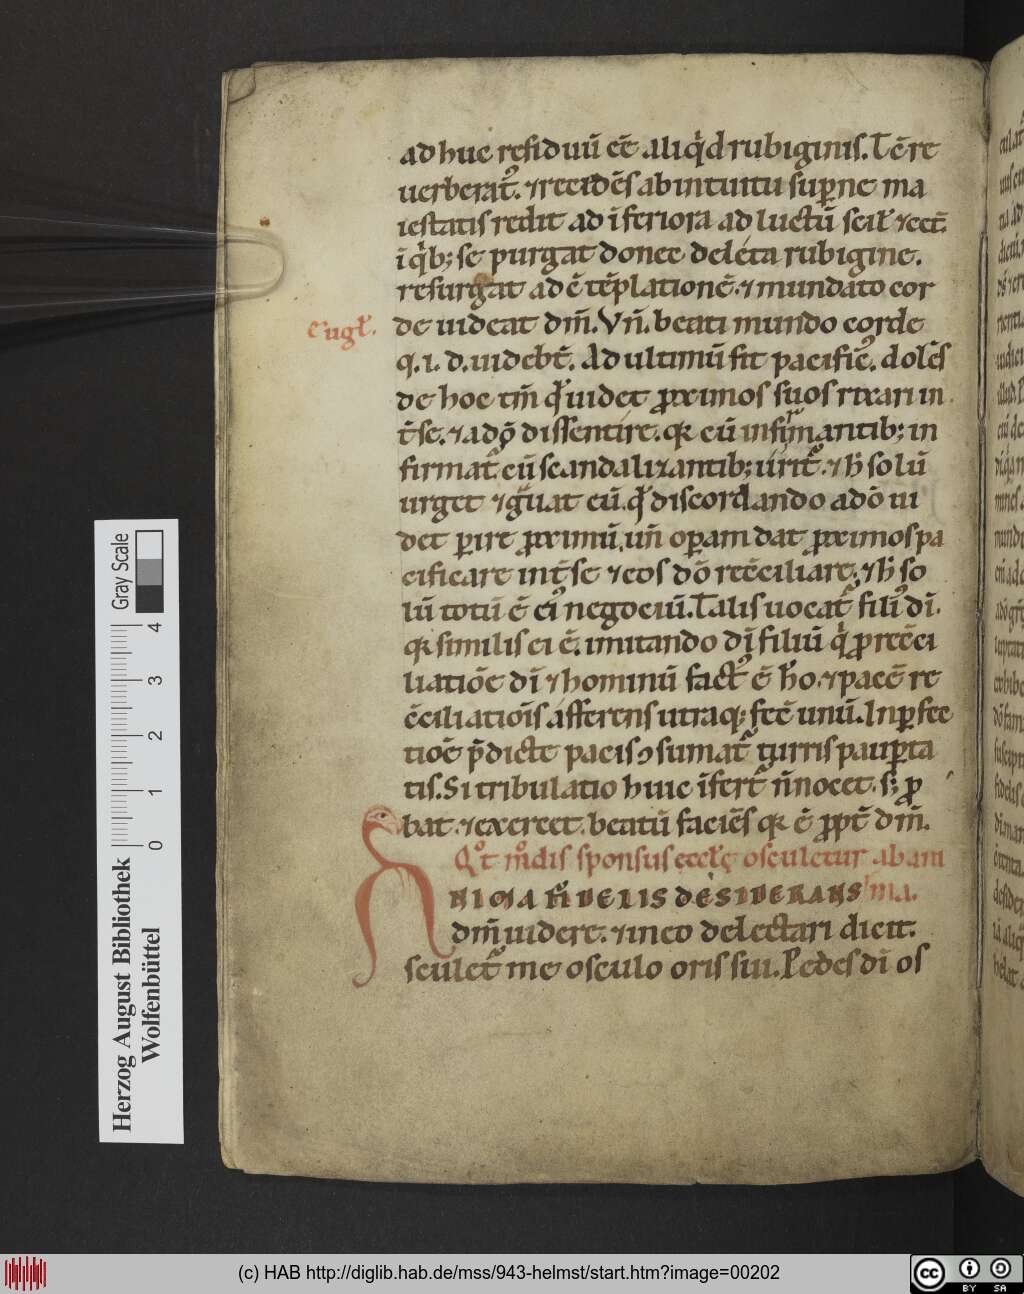 adhuc residuũ eẽ aliqͥd rubiginis. Tẽre
uerberat᷑. ⁊ recidẽs ab intuitu suꝑne ma
iestatis redit ad ĩferiora ad luctũ scił ⁊ cet᷑
ĩ qͥb; se purgat donec deleta rubigine.
resurgat ad cõtẽplationẽ. ⁊ mundato cor
eugł.
de uideat dm̃. Vñ. beati mundo corde
q. i. d. uidebt̃. Ad ultimũ fit pacific᷒. dolẽs
de hoc tm̃ qď uidet ꝓximos suos rixari in
t̃ se. ⁊ a dõ dissentire. qꝛ cũ infirmantib; in
firmat᷑ cũ scandalizantib; urit᷑. ⁊ h̃ solũ
urget ⁊ gͣuat eũ. qď discordando a dõ ui
det ꝑire ꝓximũ. uñ oꝑam dat ꝓximos pa
cificare int̃ se ⁊ eos dõ recõciliare. ⁊ h̃ so
lũ totũ ẽ ei᷒ negociũ. Talis uocat᷑ fili᷒ dĩ.
qꝛ similis ei ẽ. imitando dĩ filiũ qͥ ꝓ recõci
liatiõe dĩ ⁊ hominũ fact᷒ ẽ hõ. ⁊ pacẽ re
cõciliatiõis afferens utraq; fecĩt unũ. In ꝑfec
tiõe p̃dicte pacis ɔsumat᷑ turris pauꝑta
tis. Si tribulatio huic ĩfert᷑ ñ nocet. s; ꝓ
bat ⁊ exercet. beatũ faciẽs qꝛ ẽ ꝓpt̃ dm̃.
Qͦt mͦdis sponsus eccłę osculetur ab am
ANIMA FIDELIS DESIDERANS ma.
dm̃ uidere. ⁊ in eo delectari dicit.
sculet᷑ me osculo oris sui. Pedes dĩ os
Herzog August Bibliothek
Wolfenbüttel
Gray Scale
0 1 2 3 4
(c) HAB http://diglib.hab.de/mss/943-helmst/start.htm?image=00202
cc BY SA